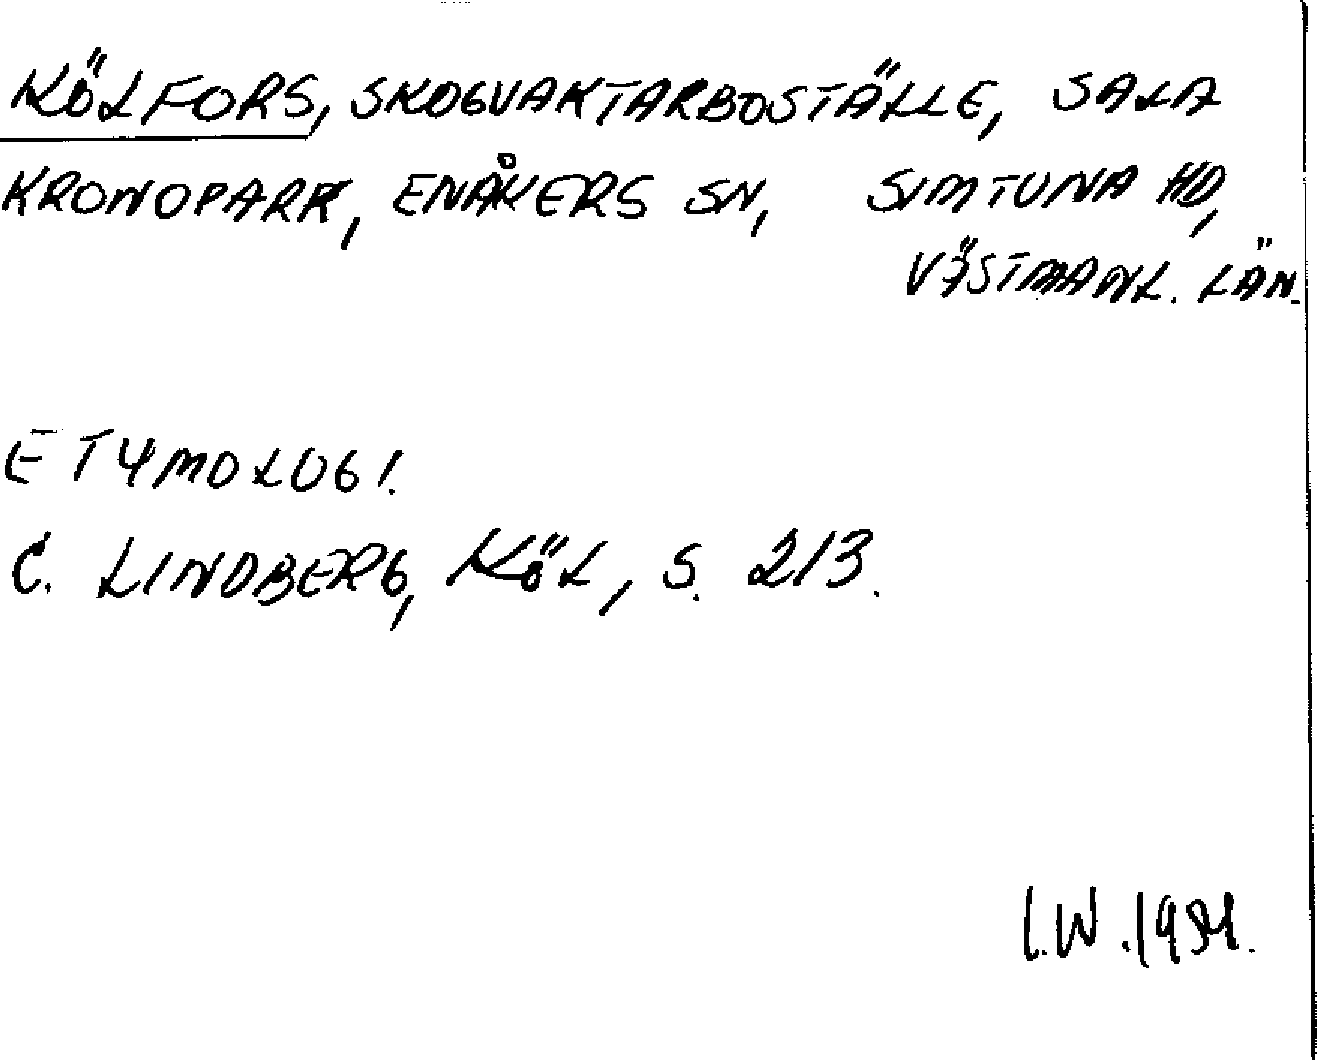 KÖLFORS, SKOGVAKTARBOSTÄLLE, SALA
KRONOPARK, ENÅKERS SN, SIMTUNA HD,
VÄSTMANL. LÄN.
ETYMOLOGI.
C. LINDBERG, KÖL, S. 213.
I.W.